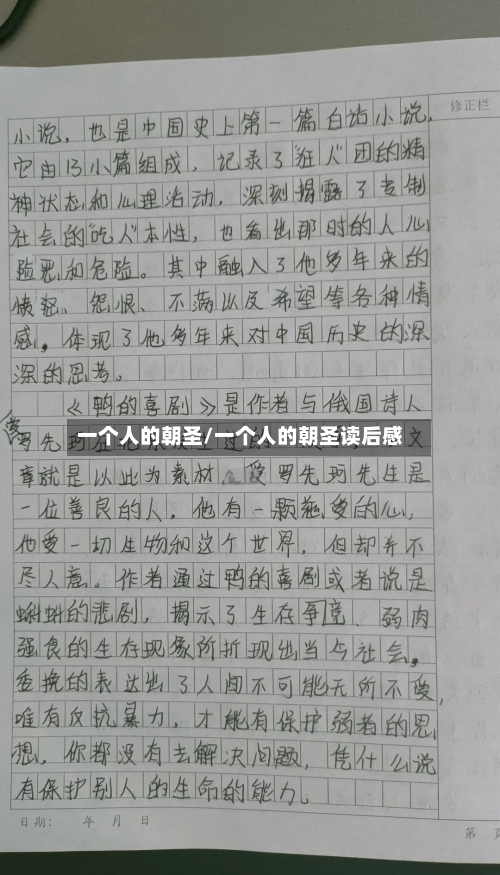 修正栏
小说，也是中国史上第一篇白话小说，
它由13小篇组成，记录了"狂人"团的精
神状态和心理活动，深刻揭露了专制
社会的"吃人"本性，也看出那时的人心
险恶和危险。其中融入了他多年来的
愤怒、怨恨、不满以及希望等各种情
感。体现了他多年来对中国历史的深
深的思考。
《鸭的喜剧》是作者与俄国诗人
一个人的朝圣/一个人的朝圣读后感
文
章就是以此为素材。爱罗先珂先生是
一位善良的人，他有一颗慈爱的心，
他爱一切生物和这个世界，但却并不
尽人意。作者通过鸭的喜剧或者说是
蝌蚪的悲剧，揭示了生在争竞、弱肉
强食的生在现象阶折现出当今社会。
委挽的表达出了人间不可能无所不爱，
唯有反抗暴力，才能有保护弱者的思
想，你都没有去解决问题，凭什么说
有保护别人的生命的能力。
日期： 年 月 日
第 页